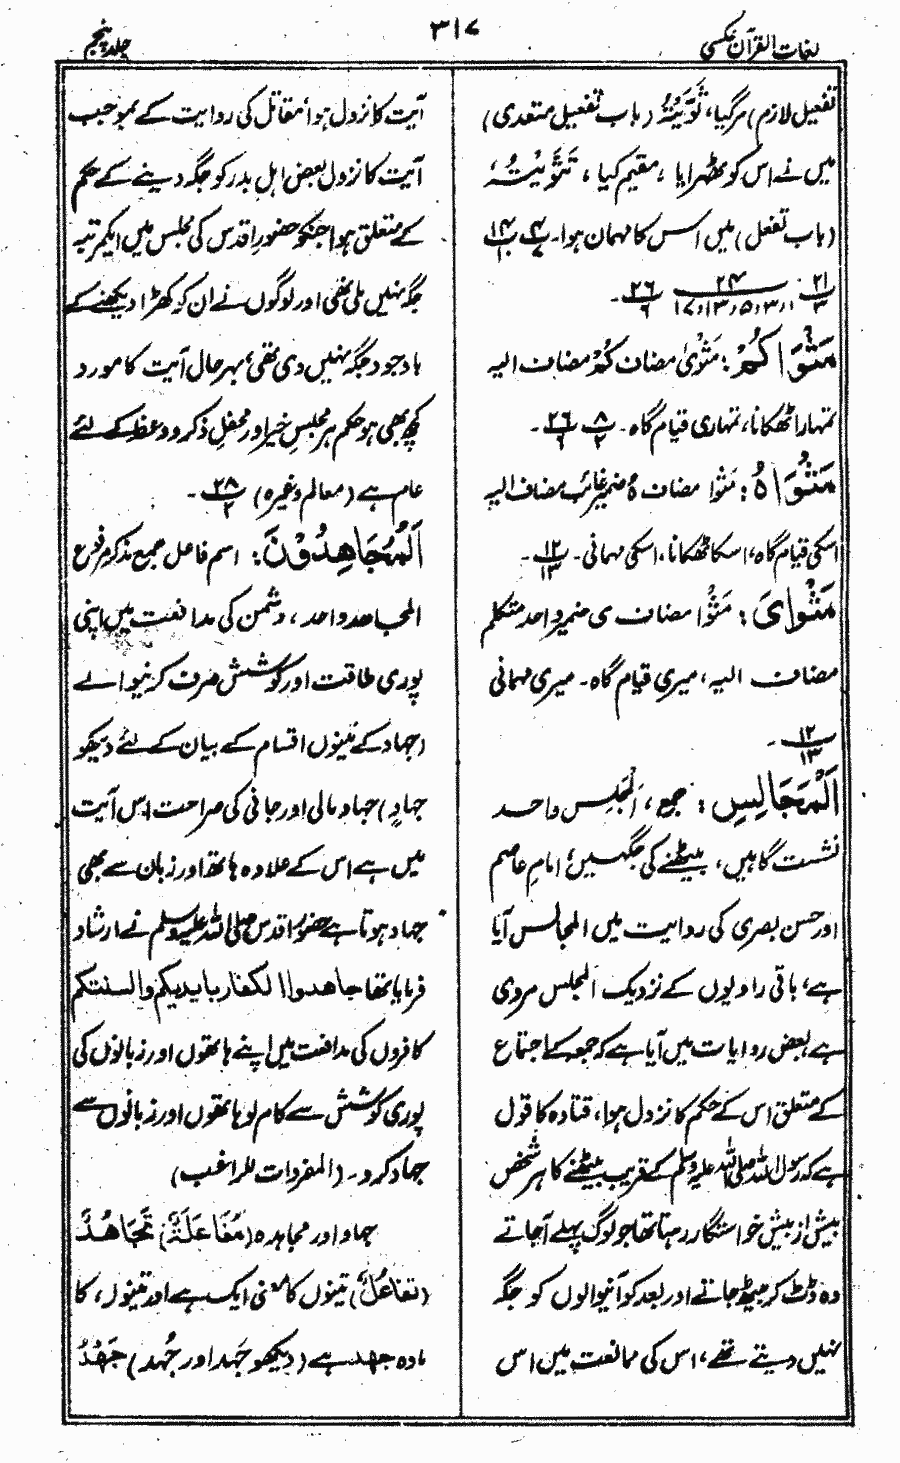 لغات القرآن عکسی
۳۱۷
جلد پنجم
تفعیل لازم) مرگیا، ثَوَّیْتُہٗ (باب تفعیل متعدی)
میں نے اس کو ٹھہرایا، مقیم کیا، تَثَوَّیْتُہٗ،
(باب تفعل) میں اس کا مہمان ہوا۔ ۴/۷ ۱۴/۱۰
۲۱/۳ ۲۴/۱، ۳، ۵، ۱۳، ۱۷ ۲۶/۶ ۔
مَثْوَاکُمْ: مَثْوٰی مضاف کُمْ مضاف الیہ
تمہارا ٹھکانا، تمہاری قیام گاہ۔ ۸/۲ ۲۶/۶ ۔
مَثْوَاہُ: مَثْوا مضاف ہٗ ضمیر غائب مضاف الیہ
اسکی قیام گاہ، اسکا ٹھکانا، اسکی مہمانی۔ ۱۲/۱۳ ۔
مَثْوَایَ: مَثْوا مضاف ی ضمیر واحد متکلم
مضاف الیہ، میری قیام گاہ۔ میری مہمانی
۱۲/۱۳ ۔
اَلْمَجَالِسِ: جمع، اَلْمَجْلِس واحد
نشست گاہیں، بیٹھنے کی جگہیں، امام عاصم
اور حسن بصری کی روایت میں المجالس آیا
ہے، باقی راویوں کے نزدیک المجلس مروی
ہے بعض روایات میں آیا ہے کہ جمعہ کے اجتماع
کے متعلق اس کے حکم کا نزول ہوا، قتادہ کا قول
ہے کہ رسول اللہ صلی اللہ علیہ وسلم کے قریب بیٹھنے کا ہر شخص
بیش از بیش خواستگار رہتا تھا جو لوگ پہلے آجاتے
وہ ڈٹ کر بیٹھ جاتے اور بعد کو آنیوالوں کو جگہ
نہیں دیتے تھے، اس کی ممانعت میں اس
آیت کا نزول ہوا، مقاتل کی روایت کے بموجب
آیت کا نزول بعض اہلِ بدر کو جگہ دینے کے حکم
کے متعلق ہوا جنکو حضورِ اقدس کی مجلس میں ایکمرتبہ
جگہ نہیں ملی تھی اور لوگوں نے ان کو کھڑا دیکھنے کے
باوجود جگہ نہیں دی تھی، بہرحال آیت کا مورد
کچھ بھی ہو حکم ہر مجلسِ خیر اور محفلِ ذکر و وعظ کے لئے
عام ہے (معالم وغیرہ) ۲۸/۲ ۔
اَلْمُجَاهِدُوْنَ: اسم فاعل جمع مذکر مرفوع
المجاهد واحد، دشمن کی مدافعت میں اپنی
پوری طاقت اور کوشش صرف کرنیوالے
(جہاد کے تینوں اقسام کے بیان کے لئے دیکھو
جہادٍ) جہاد مالی اور جانی کی صراحت اس آیت
میں ہے اس کے علاوہ ہاتھ اور زبان سے بھی
جہاد ہوتا ہے حضورِ اقدس صلی اللہ علیہ وسلم نے ارشاد
فرمایا تھا جاهدوا الکفار بایدیکم والسنتکم
کافروں کی مدافعت میں اپنے ہاتھوں اور زبانوں کی
پوری کوشش سے کام لو ہاتھوں اور زبانوں سے
جہاد کرو۔ (المفردات للراغب)
جہاد اور مجاہدہ (مُفَاعَلَۃٌ) تَجَاهُدٌ
(تفاعُلٌ) تینوں کا معنی ایک ہے اور تینوں، کا
مادہ جهد ہے (دیکھو جَہد اور جُہد) جَهْدٌ